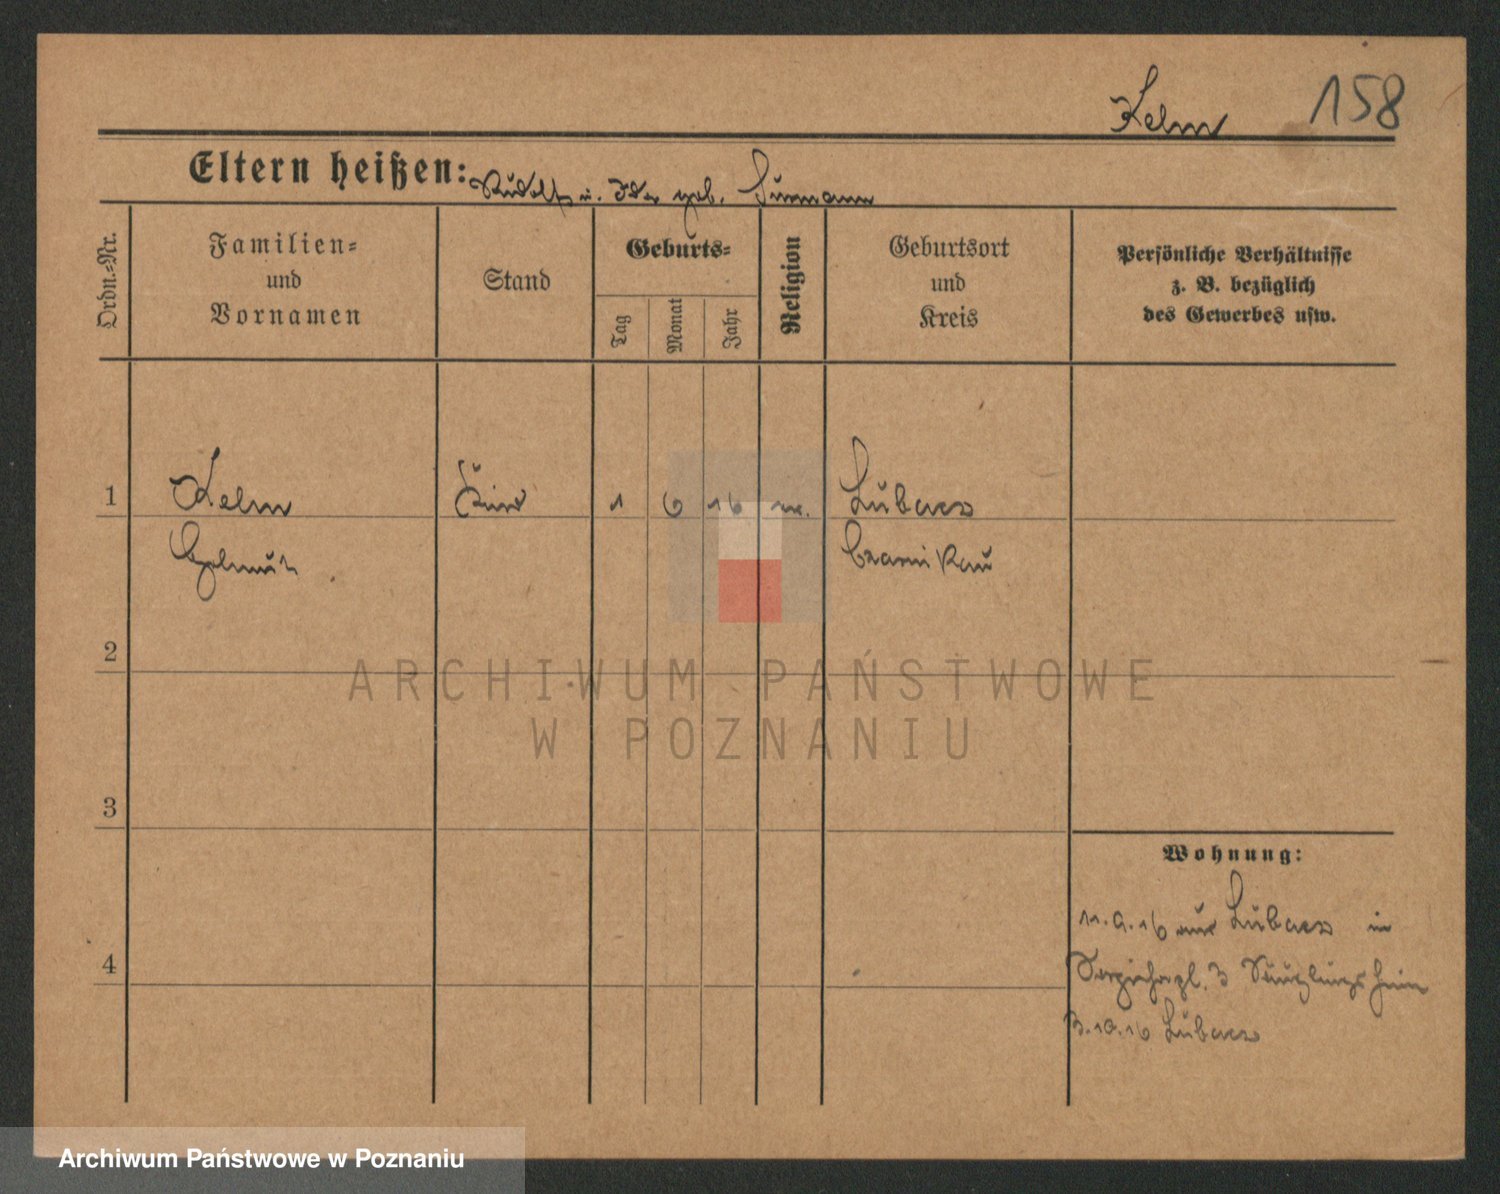 Kelm 158
Eltern heißen: Rudolf u. Ida geb. Surmann
Ordn.-Nr.
Familien-
und
Vornamen
Stand
Geburts-
Tag
Monat
Jahr
Religion
Geburtsort
und
Kreis
Persönliche Verhältnisse
z. B. bezüglich
des Gewerbes usw.
1 Kelm Kind 1 6 16 Lubasz
Helmut Czarnikau
2
3
4
Wohnung:
11.9.16 aus Lubasz in
3 Säuglingsheim
3.10.16 Lubasz
ARCHIWUM PAŃSTWOWE
W POZNANIU
Archiwum Państwowe w Poznaniu